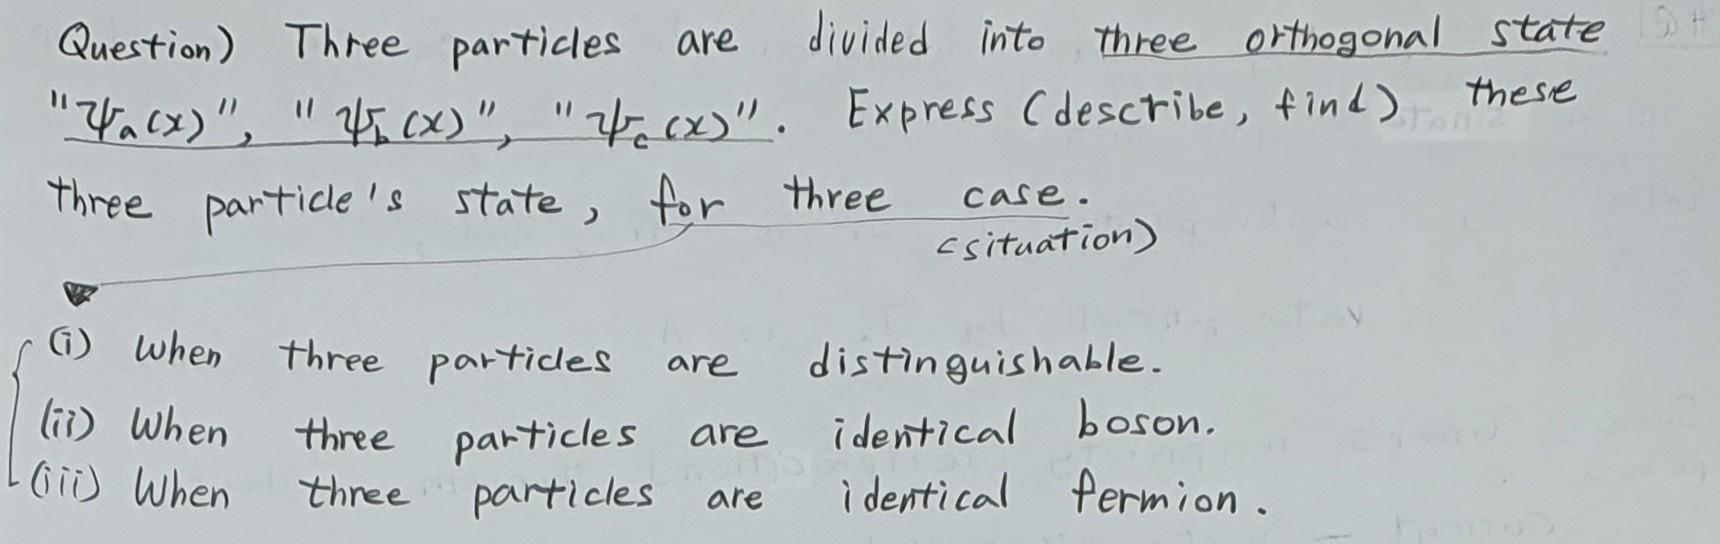 Question) Three particles are divided into three orthogonal state
"ψa(x)", "ψb(x)", "ψc(x)". Express (describe, find) these
three particle's state, for three case.
(situation)
(i) When three particles are distinguishable.
(ii) When three particles are identical boson.
(iii) When three particles are identical fermion.